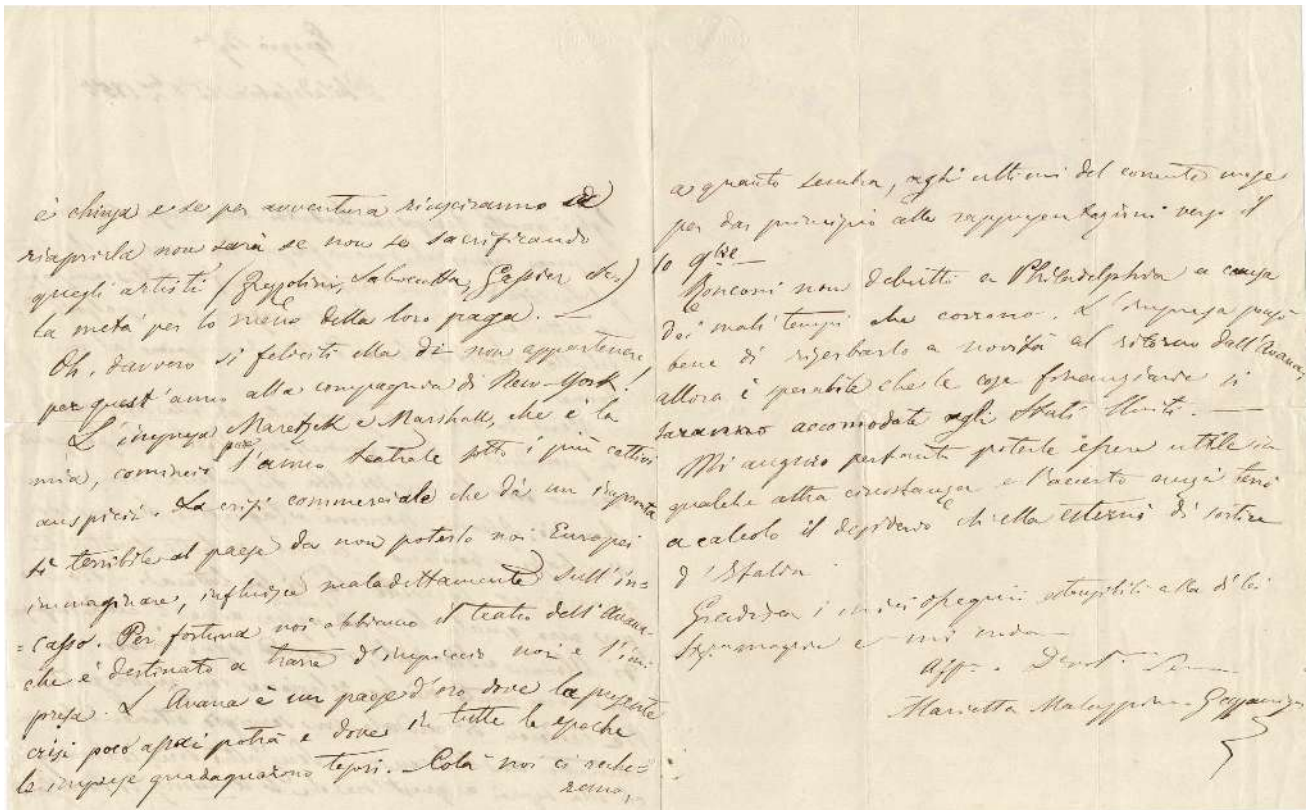 è chiusa e se per avventura riusciranno ad
riaprirla non sarà se non se sacrificando
quegli artisti (Frezzolini, Labocetta, Gassier &c)
la metà per lo meno della loro paga. —
Oh, davvero si feliciti ella di non appartenere
per quest'anno alla compagnia di New-York!
L'impresa Maretzek e Marshall, che è la
mia, cominciò pure l'anno teatrale sotto i più cattivi
auspicii. La crisi commerciale che dà un impronta
sì terribile al paese da non poterlo noi Europei
immaginare, influisce maladettamente sull'in=
=casso. Per fortuna noi abbiamo il teatro dell'Avana
che è destinato a trarre d'impiccio noi e l'im
presa. L'Avana è un paese d'oro dove la presente
crisi poco assai potrà e dove in tutte le epoche
le imprese guadagnarono tesori. Colà noi ci reche=
remo,
a quanto sembra, agli ultimi del corrente mese
per dar principio alle rappresentazioni verso il
10 9bre
Ronconi non debuttò a Philadelphia a causa
dei mali tempi che corrono. L'impresa pensò
bene di riserbarlo a novità al ritorno dall'Avana,
allora è sperabile che le cose finanziarie si
saranno accomodate agli Stati Uniti. —
Mi auguro pertanto poterle essere utile in
qualche altra circostanza e l'accerto che
a calcolo il desiderio ch'ella esternò di sortire
d'Italia
Gradisca i miei ossequii alla di lei
e mi creda
Aff. Devot.
Marietta Gazzaniga